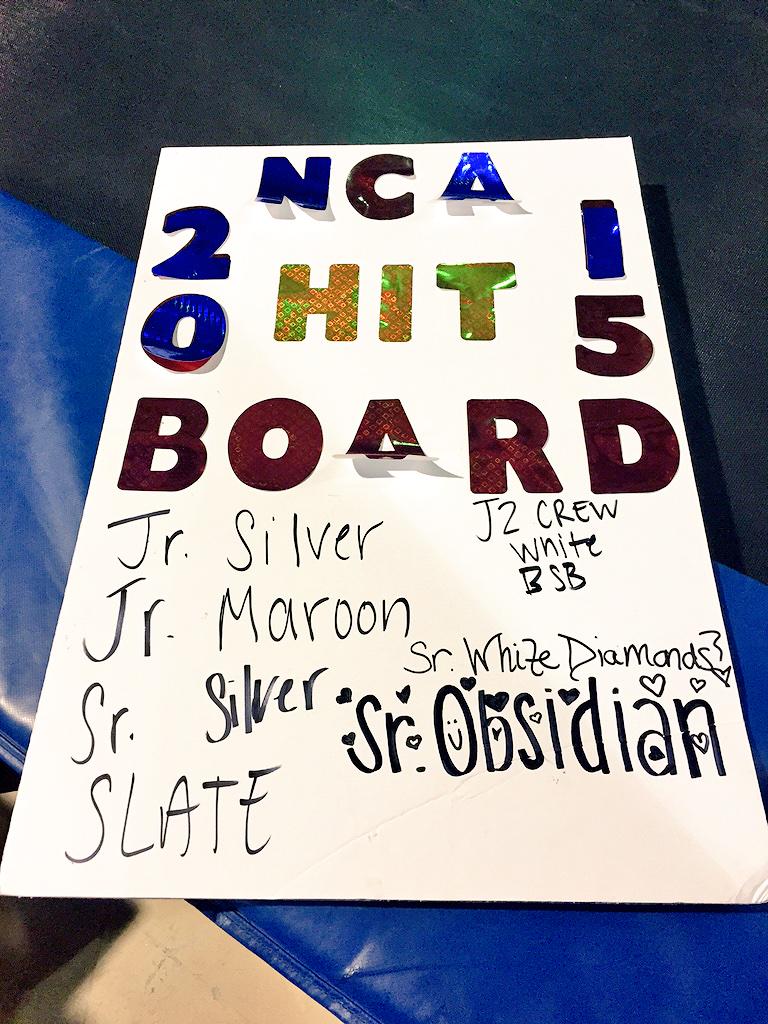 NCA
20 15
HIT
BOARD
Jr. Silver
Jr. Maroon
Sr. Silver
SLATE
J2 CREW
White
BSB
Sr. White Diamonds
Sr. Obsidian